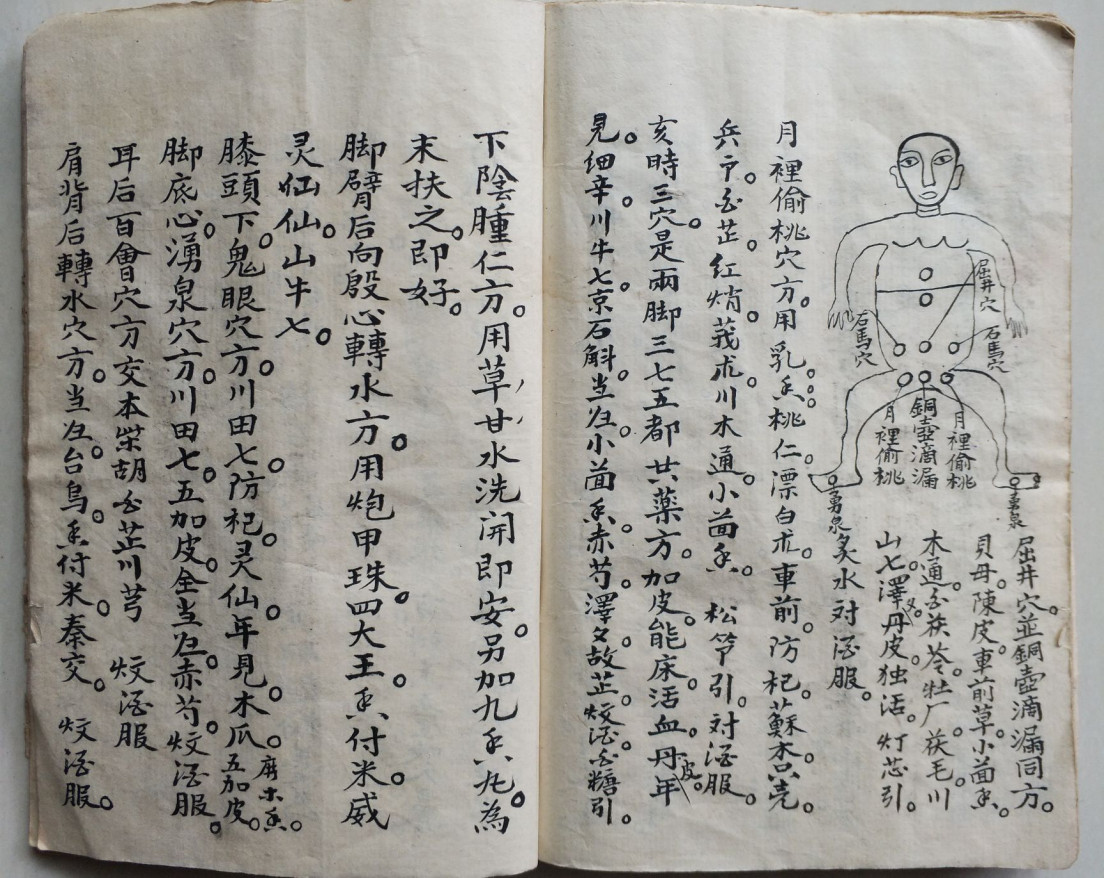 屈井穴
石馬穴
石馬穴
月裡偷桃
銅壺滴漏
月裡偷桃
勇泉
勇泉
屈井穴。並銅壺滴漏同方。
貝母。陳皮。車前草。小茴香。
木通。白茯苓。牡厂。茯毛。川
山七。澤夕。丹皮。独活。灯芯引。
炙水对酒服。
月裡偷桃穴方。用乳香。桃仁。漂白朮。車前。防杞。蘇木。只壳。
兵卩。白芷。紅焇。莪朮。川木通。小茴香。松筞引。对酒服。
亥時三穴。是兩脚三七五都廿藥方。加皮。能床。活血。丹皮。年
見。细辛。川牛七。京石斛。当归。小茴香。赤芍。澤夕。故芷。炆酒。白糖引。
下陰腫仁方。用草甘水洗開即安。另加九香丸。為
末扶之。即好。
脚臂后向殷心轉水方。用炮甲珠。四大王。香付米。威
灵仙。仙山牛七。
膝頭下。鬼眼穴方。川田七。防杞。灵仙。年見。木瓜。五加皮。唐木香。
脚底心。湧泉穴方。川田七。五加皮。全当归。赤芍。炆酒服。
耳后百會穴方交本柴胡白芷川芎 炆酒服
肩背后轉水穴方。当归。台烏。香付米。秦交。 炆酒服。